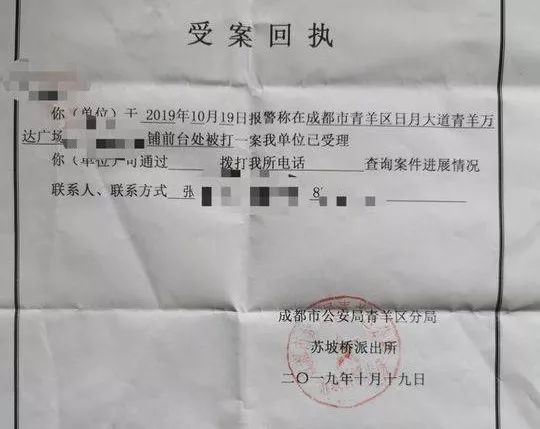 受案回执
你（单位）于 2019年10月19日报警称在成都市青羊区日月大道青羊万
达广场 铺前台处被打一案我单位已受理
你（单位）可通过 拨打我所电话 查询案件进展情况
联系人、联系方式 张 8
成都市公安局青羊区分局
苏坡桥派出所
二〇一九年十月十九日